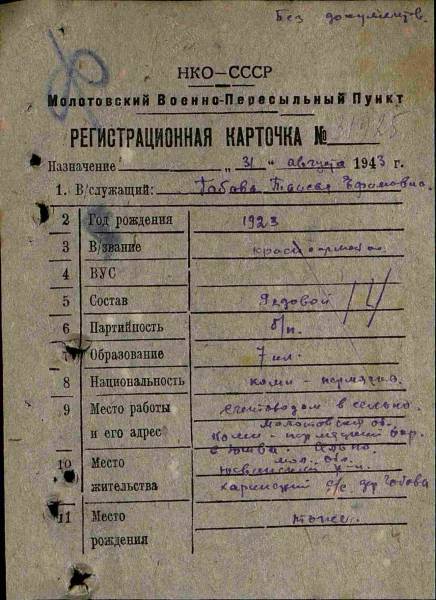 Без документов.
НКО—СССР
Молотовский Военно-Пересыльный Пункт
РЕГИСТРАЦИОННАЯ КАРТОЧКА №
Назначение „ 31 “ августа 1943 г.
1. В/служащий: Габова Таисья Ефимовна
2 Год рождения 1923
3 В/звание
4 ВУС
5 Состав Рядовой
6 Партийность б/п.
7 Образование 7 кл.
8 Национальность коми - пермячка.
9 Место работы счетоводом в сельпо.
и его адрес Молотовская об.
Коми - пермяцкий
с Юсьва. Сельпо.
10 Место мол. об.
Юсвинский р-н
жительства Харинский с/с. дер Габова
11 Место тоже.
рождения